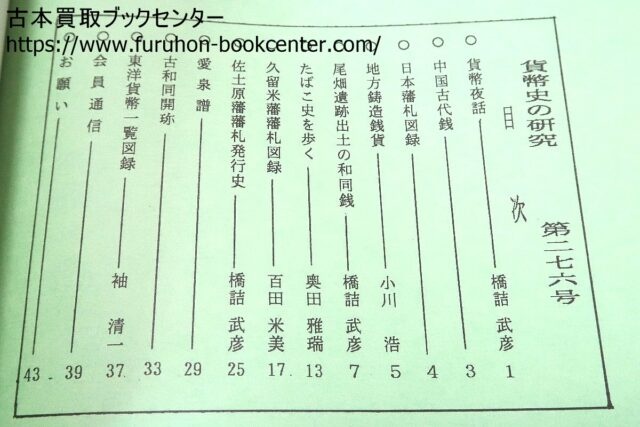 古本買取ブックセンター
https://www.furuhon-bookcenter.com/
貨幣史の研究 第二七六号
目次
○ 貨幣夜話 橋詰 武彦 1
○ 中国古代銭 3
○ 日本藩札図録 4
○ 地方鋳造銭貨 小川 浩 5
尾畑遺跡出土の和同銭 橋詰 武彦 7
たばこ史を歩く 奥田 雅瑞 13
久留米藩藩札図録 百田 米美 17
佐土原藩藩札発行史 橋詰 武彦 25
○ 愛泉譜 29
○ 古和同開珎 33
東洋貨幣一覧図録 袖 清一 37
○ 会員通信 39
○ お願い 43